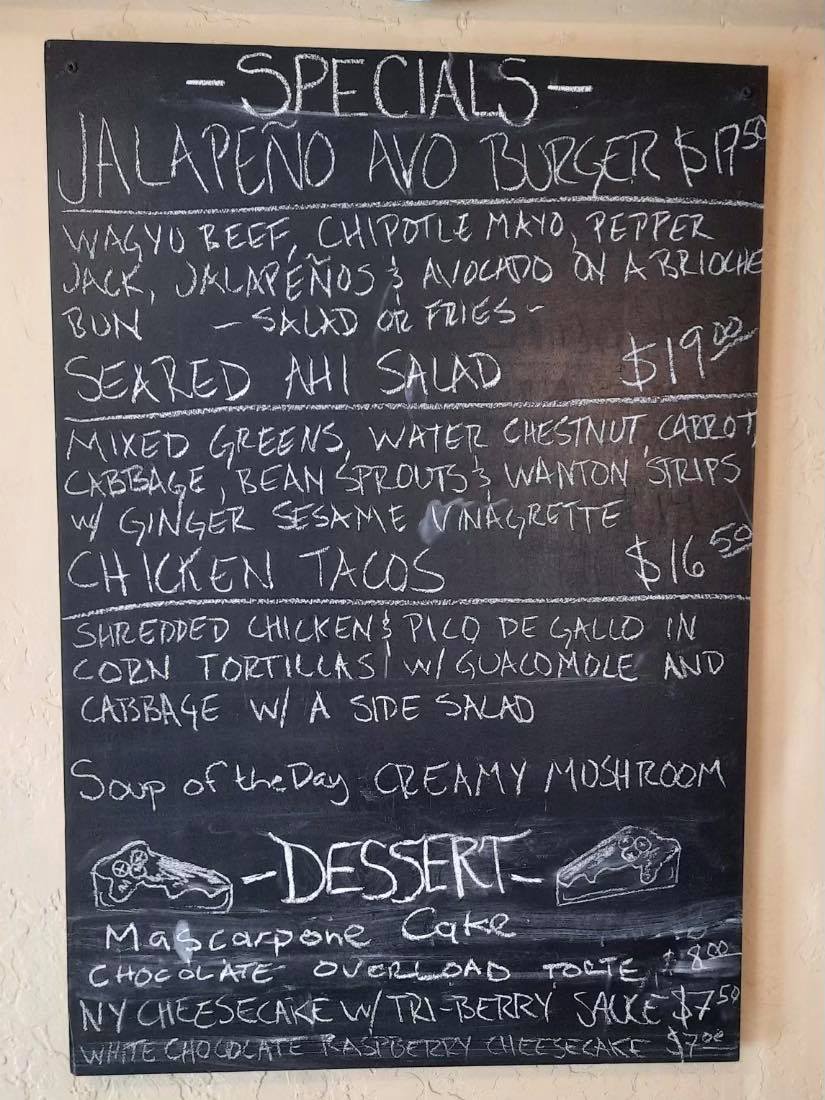 -SPECIALS-
JALAPEÑO AVO BURGER $17.50
WAGYU BEEF, CHIPOTLE MAYO, PEPPER
JACK, JALAPEÑOS & AVOCADO ON A BRIOCHE
BUN - SALAD OR FRIES -
SEARED AHI SALAD $19.00
MIXED GREENS, WATER CHESTNUT, CARROT,
CABBAGE, BEAN SPROUTS & WANTON STRIPS
W/ GINGER SESAME VINAGRETTE
CHICKEN TACOS $16.50
SHREDDED CHICKEN & PICO DE GALLO IN
CORN TORTILLAS W/ GUACOMOLE AND
CABBAGE W/ A SIDE SALAD
Soup of the Day CREAMY MUSHROOM
-DESSERT-
Mascarpone Cake
CHOCOLATE OVERLOAD TORTE $8.00
NY CHEESECAKE W/ TRI-BERRY SAUCE $7.50
WHITE CHOCOLATE RASPBERRY CHEESECAKE $7.00